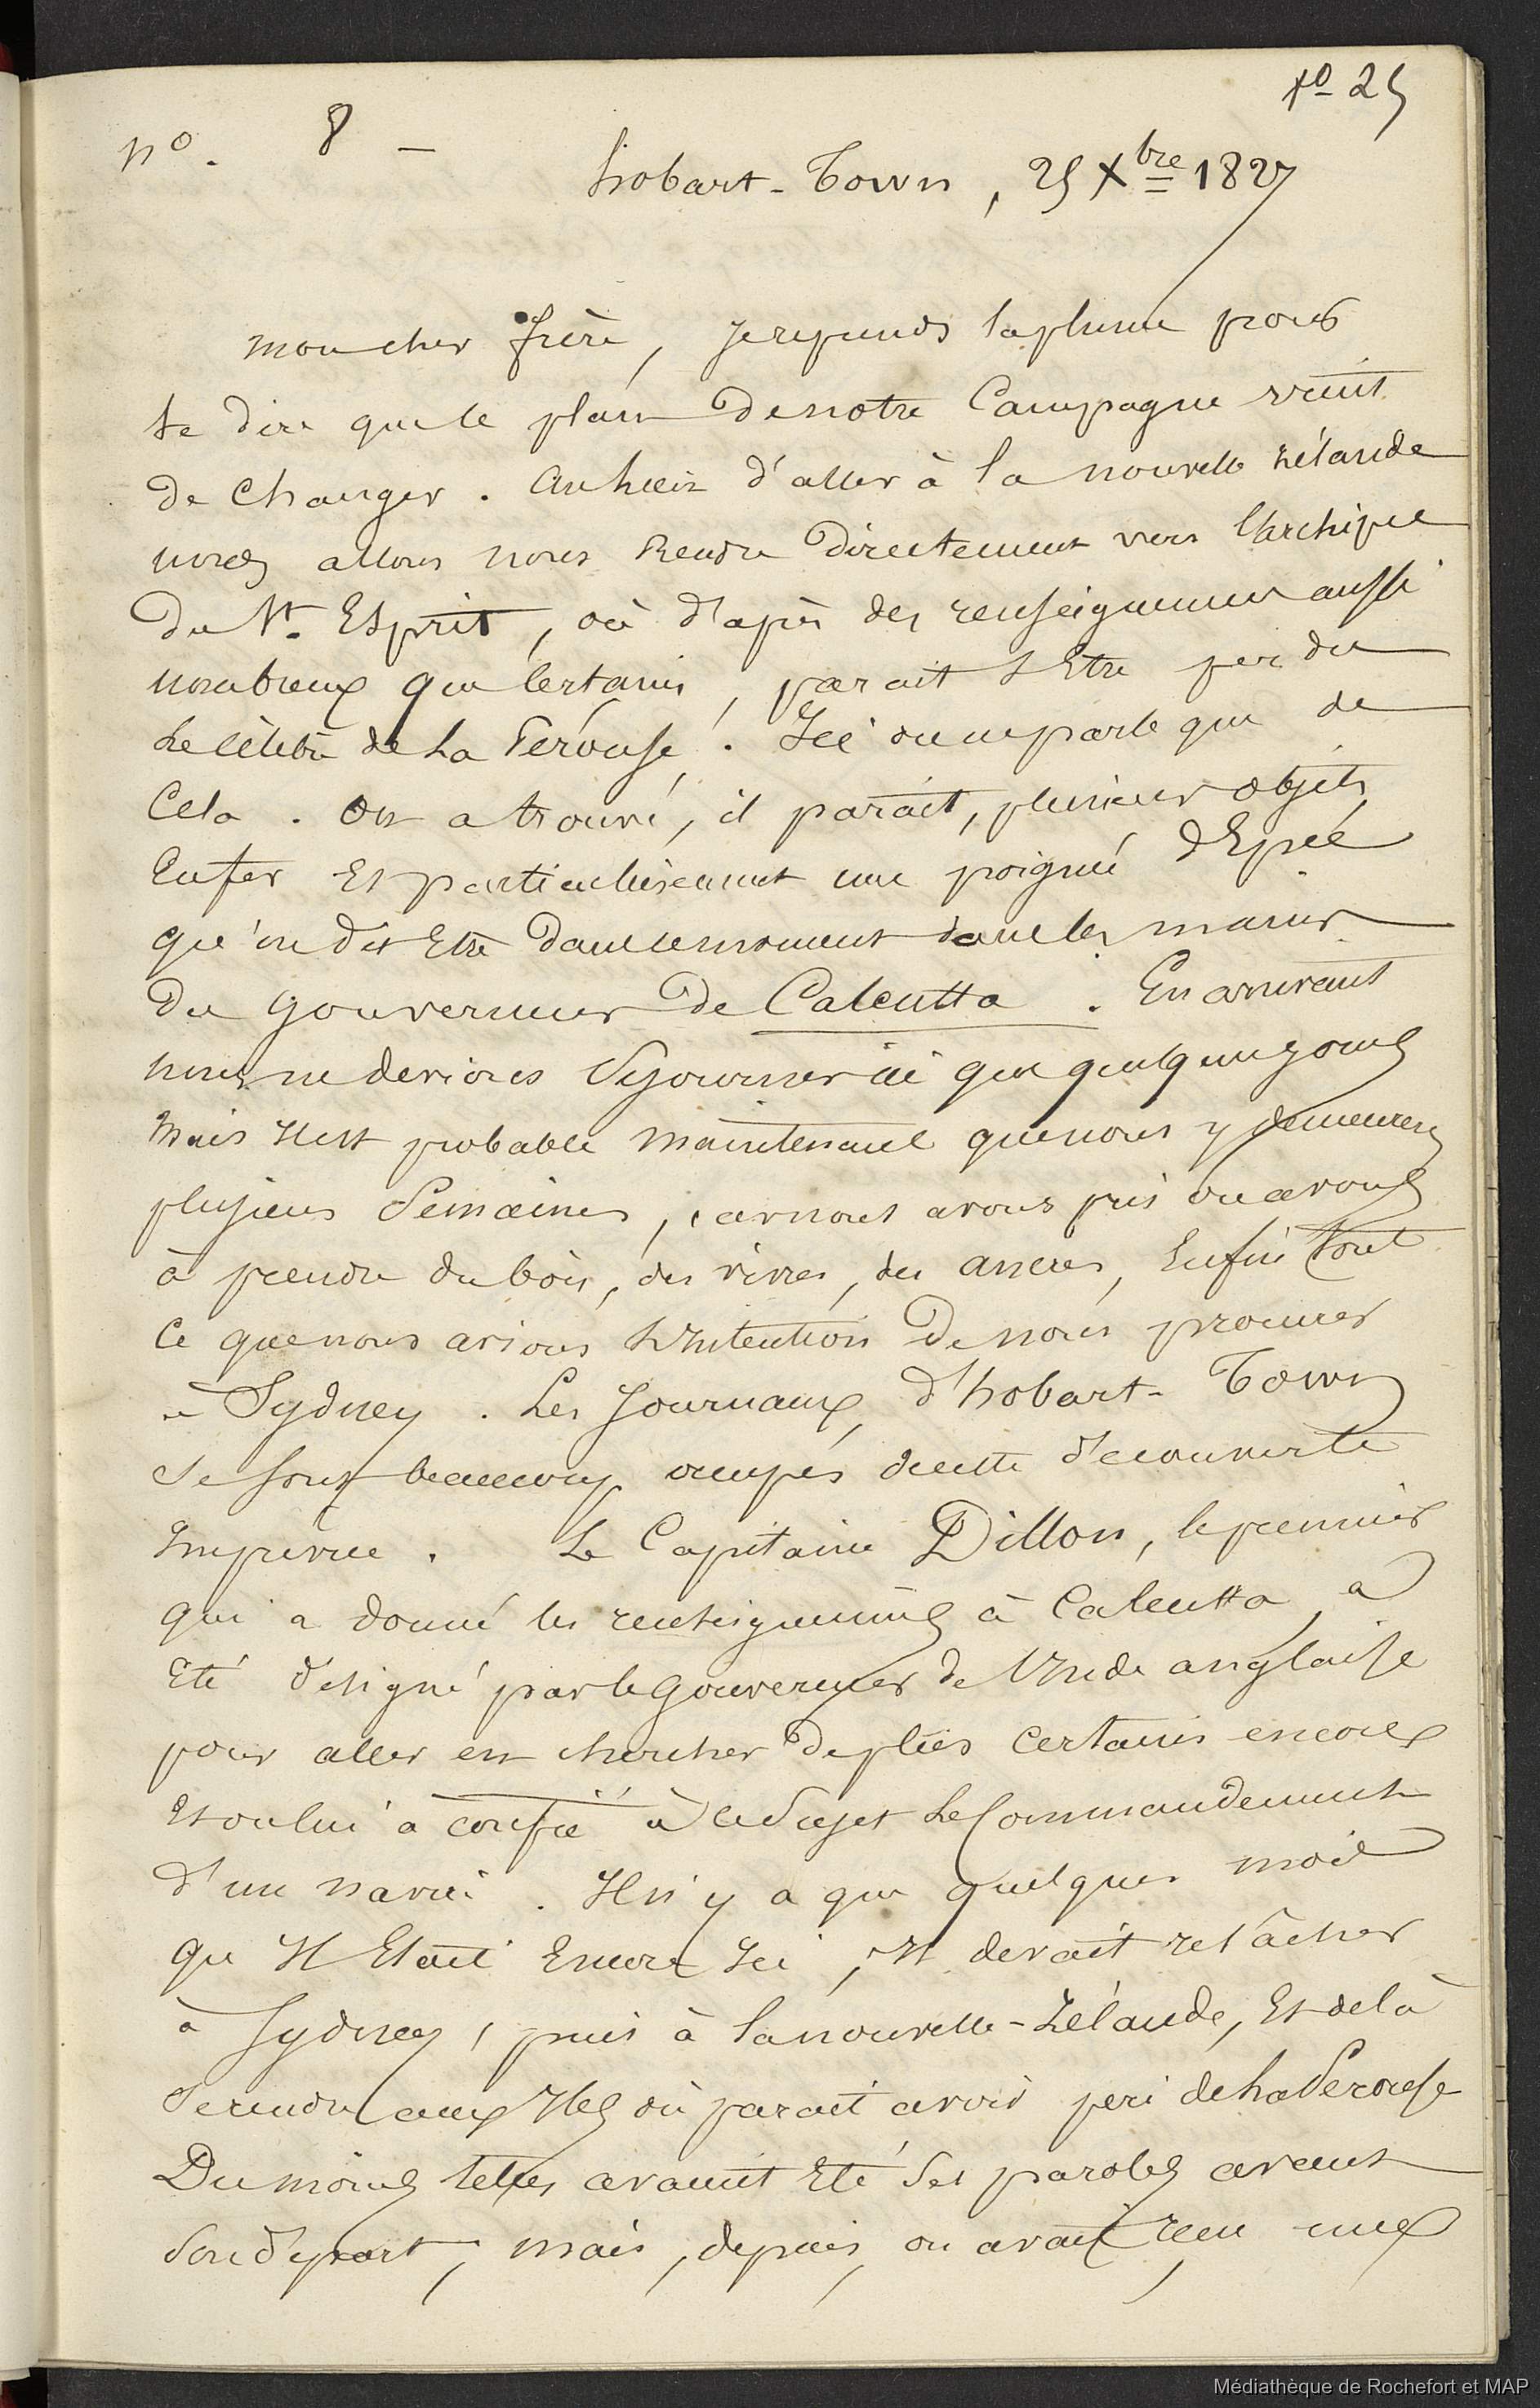 fo 25
no. 8 –
hobart-Town, 25 Xbre 1827
mon cher frère, je reprends la plume pour
te dire que le plan de notre Campagne vient
de changer. Au lieu d'aller à la nouvelle Zélande
nous allons nous Rendre directement vers l'archipel
du St. Esprit, où d'après des renseignemens aussi
nombreux que Certains, parait s'Etre perdu
Le célèbre de La Pérouse! Ici on ne parle que de
Cela. On a trouvé, il parait, plusieurs objets
En fer Et particulièrement une poignée d'Epée
qu'on dit Etre dans ce moment dans les mains
du gouverneur de Calcutta. En arrivant
nous ne devions Séjourner ici que quelques jours
mais Il est probable maintenant que nous y demeurerons
plusieurs Semaines, car nous avons pris ou avons
à prendre du bois, des vivres, des ancres, Enfin tout
Ce que nous avions L'Intention de nous procurer
à Sydney. Les Journaux d'hobart-Town
Se sont beaucoup occupés de cette découverte
Imprévue. Le Capitaine Dillon, le premier
qui a donné les renseignemens à Calcutta, a
Eté désigné par le Gouverneur de l'Inde anglaise
pour aller en chercher de plus certains encore
Et on lui a confié à ce Sujet Le Commandement
d'un navire. Il n'y a que quelques mois
qu'Il Etait Encore Ici, Il devait relâcher
à Sydney, puis à la nouvelle-Zélande, Et de là
Se rendre aux Iles où parait avoir peri de La Perouse
Du moins telles avaient Eté Ses paroles avant
Son départ, mais, depuis, on avait reçu une
Médiathèque de Rochefort et MAP